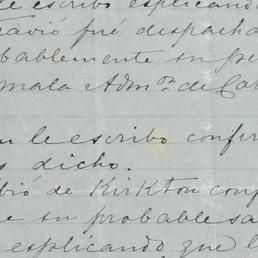 le escribo explicando
tavió fué despacha
bablemente su
mala Admon. de Ca
u le escribo confir
s dicho.
bió de Kirkton conf
e su probable sa
explicando que l